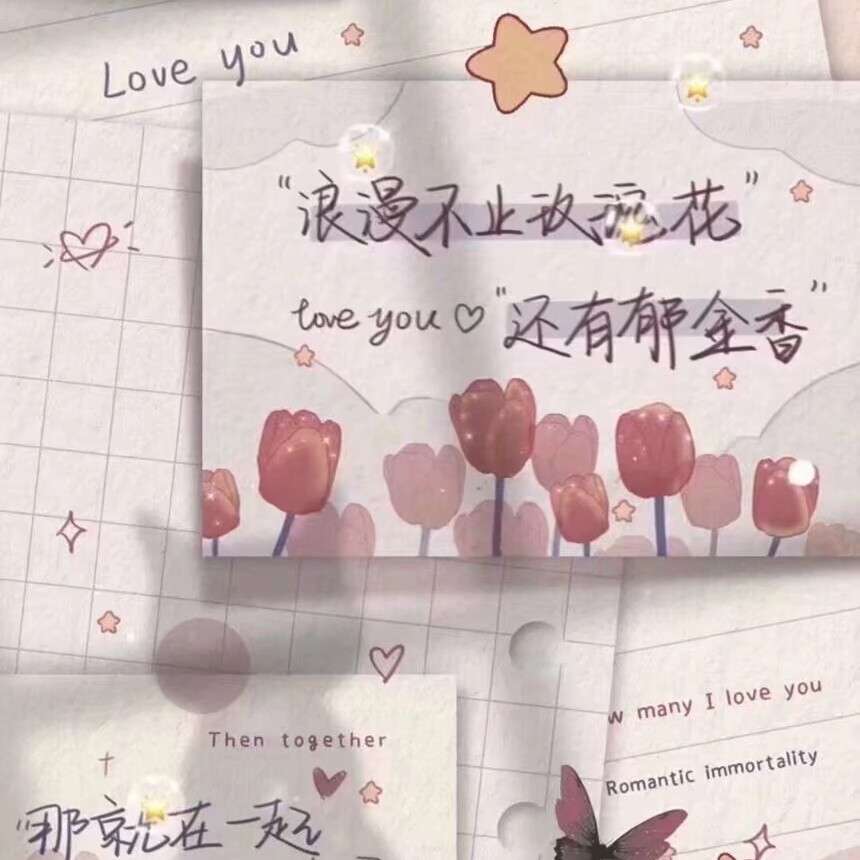 Love you
"浪漫不止玫瑰花"
love you ♡ "还有郁金香"
w many I love you
Romantic immortality
Then together
"那就在一起